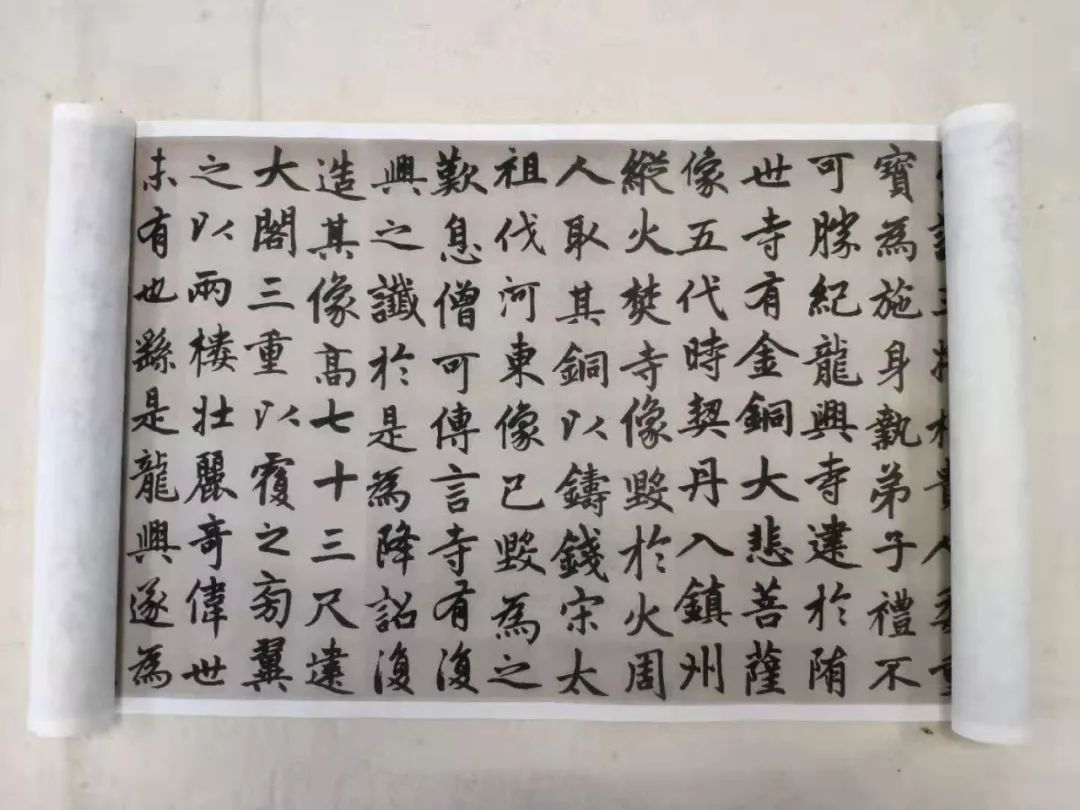 寶為施身執弟子禮不
可勝紀龍興寺建於隋
世寺有金銅大悲菩薩
像五代時契丹入鎮州
縱火焚寺像毀於火周
人取其銅以鑄錢宋太
祖伐河東像已毀為之
歎息僧可傳言寺有復
興之讖於是為降詔復
造其像高七十三尺建
大閣三重以覆之旁翼
之以兩樓壯麗奇偉世
未有也繇是龍興遂為